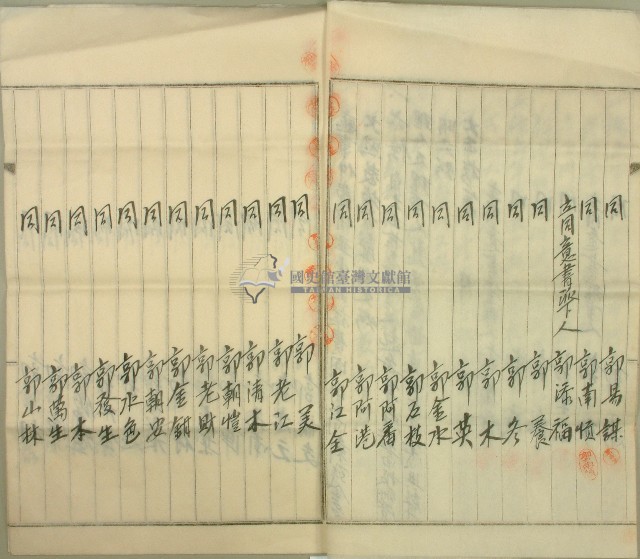 同 郭易鍱
同 郭南恆
立同意書契人 郭添福
同 郭養
同 郭冬
同 郭木
同 郭英
同 郭金水
同 郭石枝
同 郭阿番
同 郭阿港
同 郭江全
同 郭美
同 郭老江
同 郭清木
同 郭朝愷
同 郭老財
同 郭金鉗
同 郭朝安
同 郭水色
同 郭發生
同 郭本
同 郭萬生
同 郭山林
國史館臺灣文獻館
TAIWAN HISTORICA